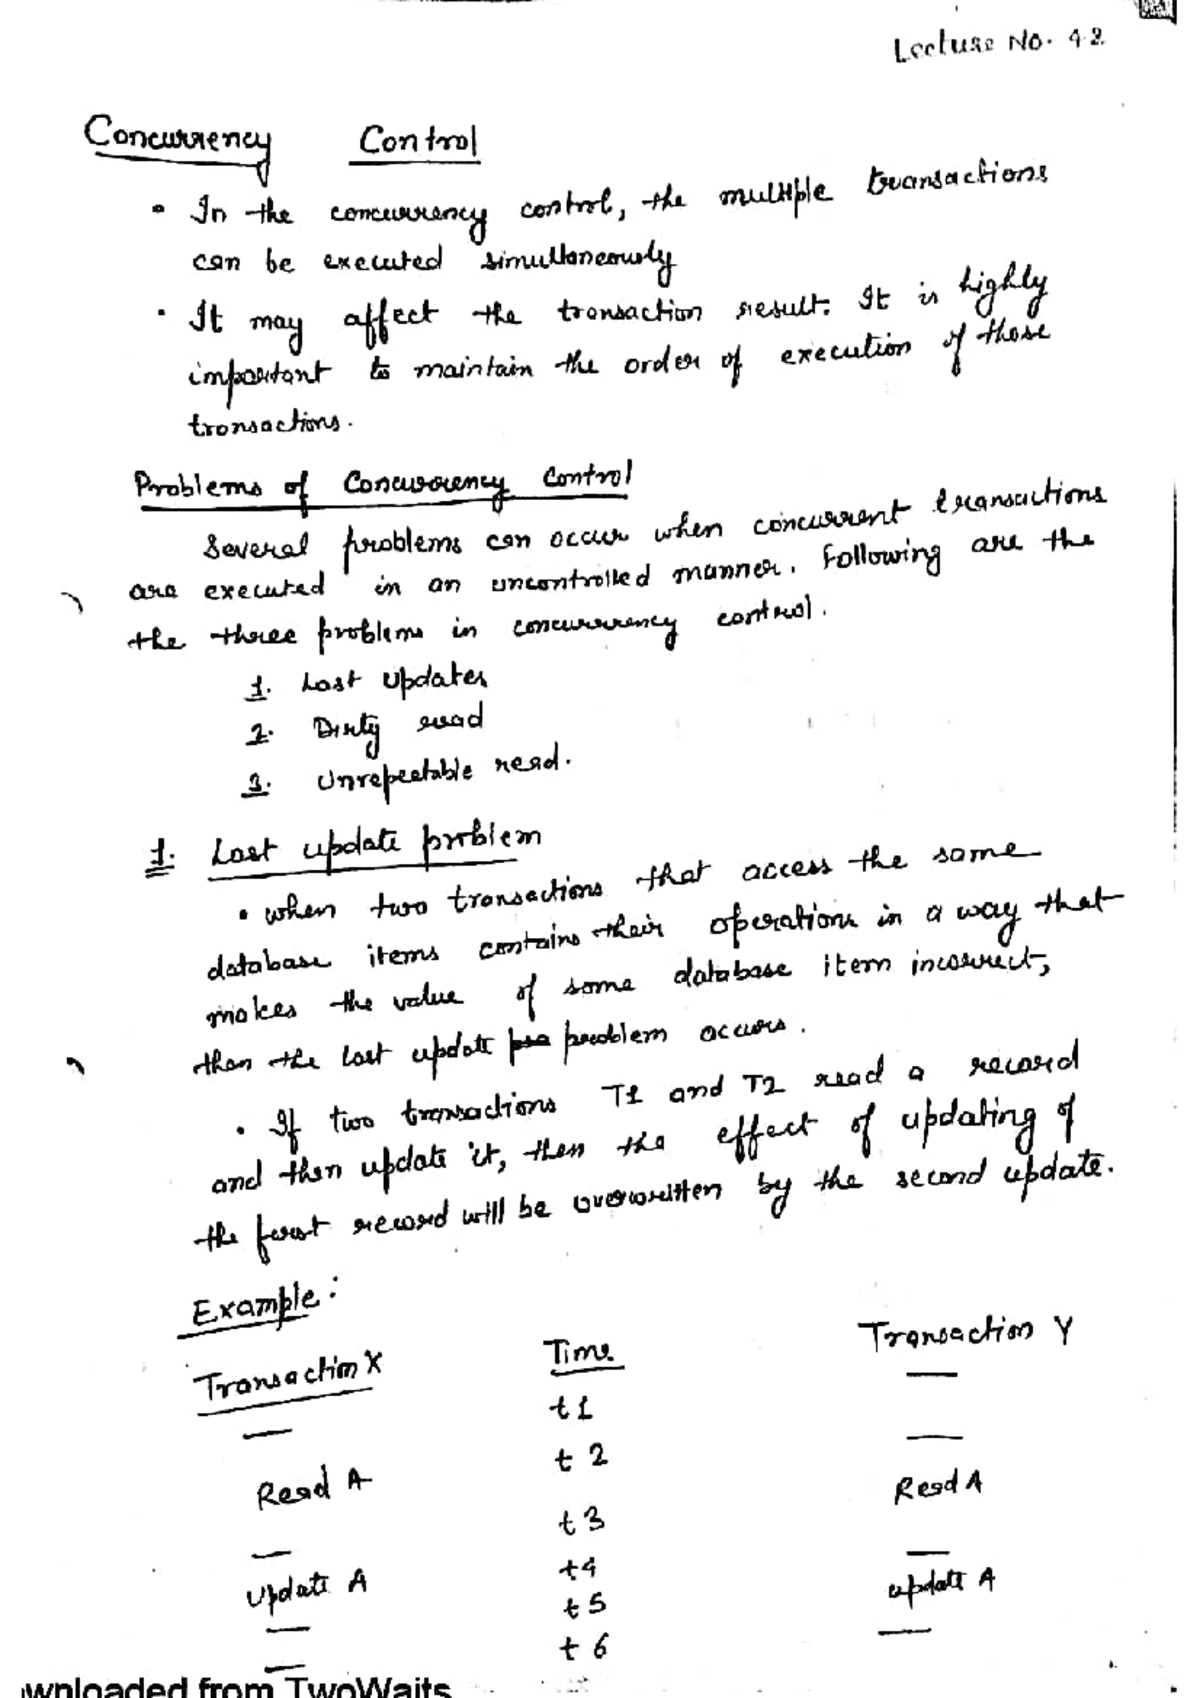 Lecture No. 42
Concurrency Control
• In the concurrency control, the multiple transactions
can be executed simultaneously
• It may affect the transaction result. It is highly
important to maintain the order of execution of those
transactions.
Problems of Concurrency Control
Several problems can occur when concurrent transactions
are executed in an uncontrolled manner. Following are the
the three problems in concurrency control.
1. Lost Updates
2. Dirty read
3. Unrepeatable read.
1. Lost update problem
• when two transactions that access the same
database items contains their operations in a way that
makes the value of some database item incorrect,
then the lost update problem occurs.
• If two transactions T1 and T2 read a record
and then update it, then the effect of updating of
the first record will be overwritten by the second update.
Example:
Transaction X Time Transaction Y
— t1 —
Read A t2 —
— t3 Read A
Update A t4 —
— t5 update A
— t6 —
wnloaded from TwoWaits